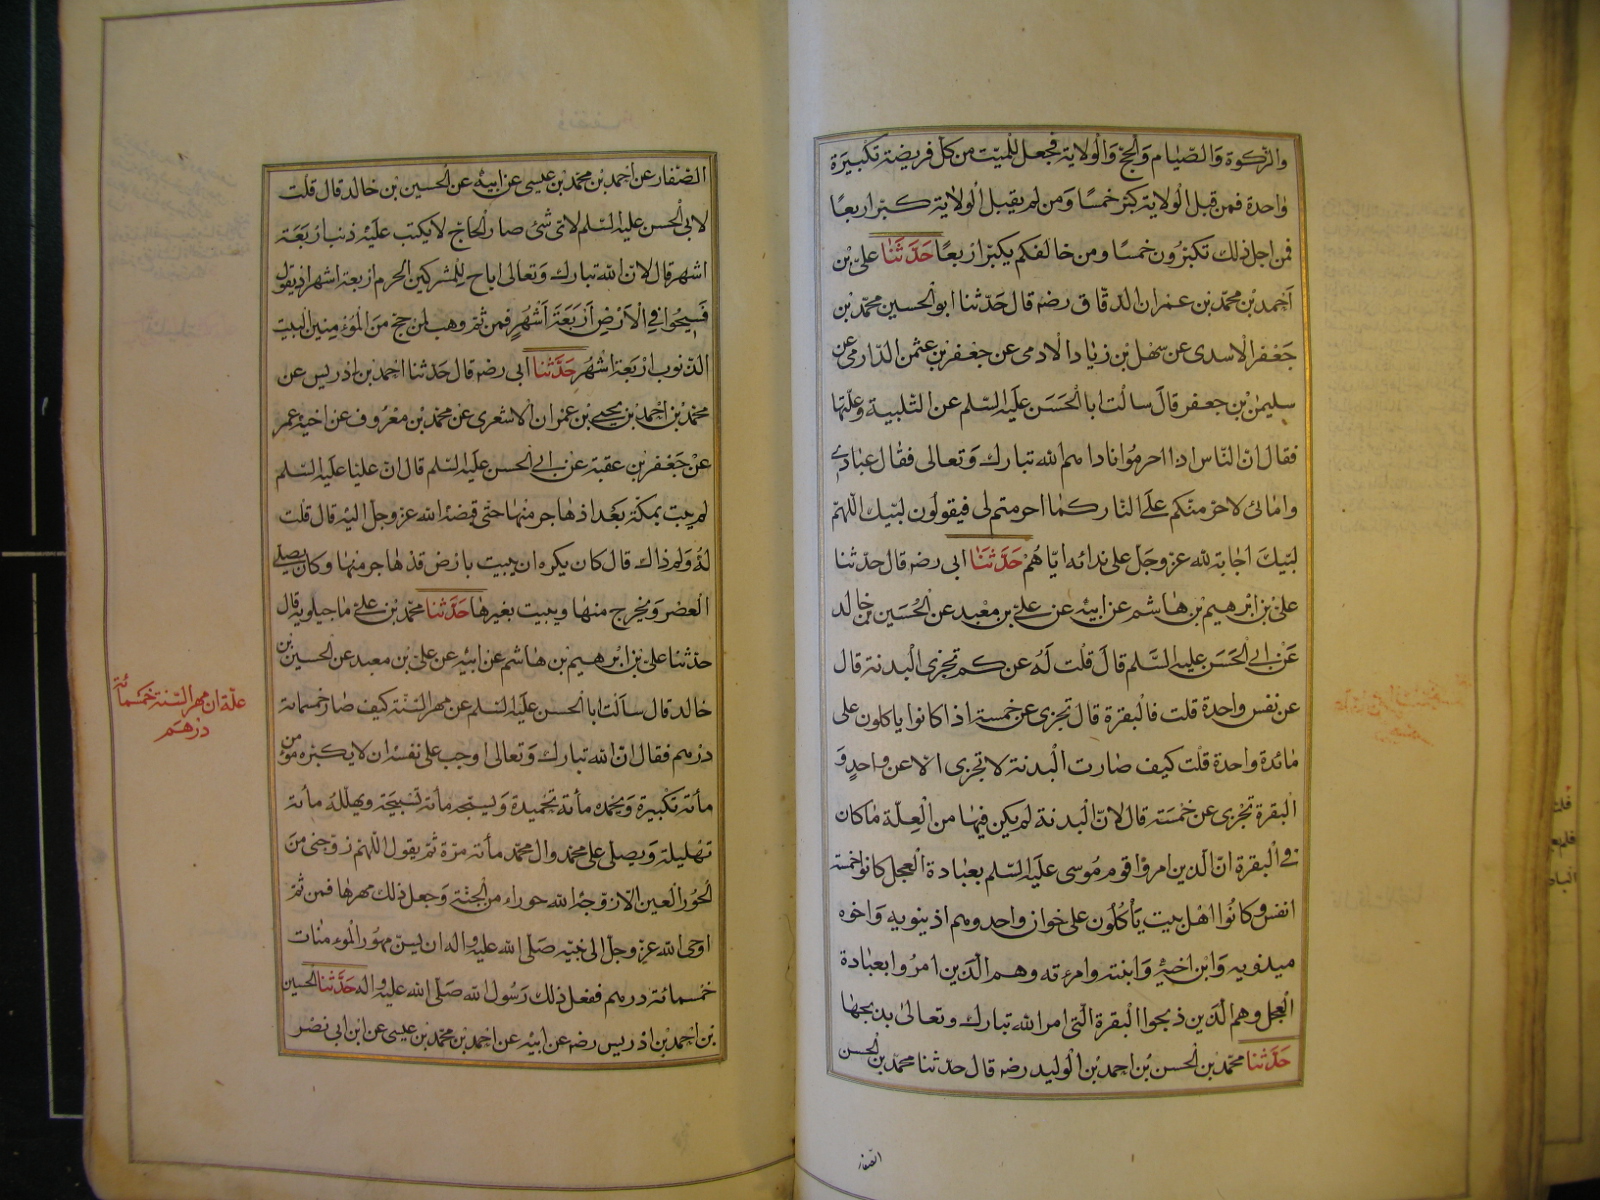 والزكوة والصيام والحج والولاية فجعل للميت من كل فريضة تكبيرة
واحدة فمن قبل الولاية كبر خمسا ومن لم يقبل الولاية كبر اربعا
فمن اجل ذلك تكبرون خمسا ومن خالفكم يكبر اربعا حدثنا على بن
احمد بن محمد بن عمران الدقاق رضه قال حدثنا ابو الحسين محمد بن
جعفر الاسدى عن سهل بن زياد الادمى عن جعفر بن عثمن الدارمى عن
سليمن بن جعفر قال سالت ابا الحسن عليه السلم عن التلبية وعلتها
فقال ان الناس اذا احرموا ناداهم الله تبارك وتعالى فقال عبادى
وامائى لاحرمنكم على النار كما احرمتم لى فيقولون لبيك اللهم
لبيك اجابة لله عز وجل على ندائه اياهم حدثنا ابى رضه قال حدثنا
على بن ابرهيم بن هاشم عن ابيه عن على بن معبد عن الحسين بن خالد
عن ابى الحسن عليه السلم قال قلت له عن كم تجزى البدنة قال
عن نفس واحدة قلت فالبقرة قال تجزى عن خمسة اذا كانوا ياكلون على
مائدة واحدة قلت كيف صارت البدنة لا تجزى الا عن واحد و
البقرة تجزى عن خمسة قال لان البدنة لم يكن فيها من العلة ما كان
فى البقرة ان الذين امروا قوم موسى عليه السلم بعبادة العجل كانوا خمسة
انفس وكانوا اهل بيت يأكلون على خوان واحد وهم اذينويه واخوه
ميذويه وابن اخيه وابنته وامرءته وهم الذين امروا بعبادة
العجل وهم الذين ذبحوا البقرة التى امر الله تبارك وتعالى بذبحها
حدثنا محمد بن الحسن بن احمد بن الوليد رضه قال حدثنا محمد بن الحسن
الصفار
الصفار عن احمد بن محمد بن عيسى عن ابيه عن الحسين بن خالد قال قلت
لابى الحسن عليه السلم لاى شئ صار الحاج لا يكتب عليه ذنب اربعة
اشهر قال لان الله تبارك وتعالى اباح للمشركين الحرم اربعة اشهر اذ يقول
فسيحوا فى الارض اربعة اشهر فمن ثم وهب لمن حج من المؤمنين البيت
الذنوب اربعة اشهر حدثنا ابى رضه قال حدثنا احمد بن ادريس عن
محمد بن احمد بن يحيى بن عمران الاشعرى عن محمد بن معروف عن اخيه عمر
عن جعفر بن عقبة عن ابى الحسن عليه السلم قال ان عليا عليه السلم
لم يبت بمكة بعد اذ هاجر منها حتى قبضه الله عز وجل اليه قال قلت
له ولم ذاك قال كان يكره ان يبيت بارض قد هاجر منها وكان يصلى
العصر ويخرج منها ويبيت بغيرها حدثنا محمد بن على ماجيلويه قال
حدثنا على بن ابرهيم بن هاشم عن ابيه عن على بن معبد عن الحسين بن
خالد قال سالت ابا الحسن عليه السلم عن مهر السنة كيف صار خمسمائة
درهم فقال ان الله تبارك وتعالى اوجب على نفسه ان لا يكبره مؤمن
مائة تكبيرة ويحمده مائة تحميدة ويسبحه مائة تسبيحة ويهلله مائة
تهليلة ويصلى على محمد وال محمد مائة مرة ثم يقول اللهم زوجنى من
الحور العين الا زوجه الله حوراء من الجنة وجعل ذلك مهرها فمن ثم
اوحى الله عز وجل الى نبيه صلى الله عليه واله ان يسن مهور المؤمنات
خمسمائة درهم ففعل ذلك رسول الله صلى الله عليه واله حدثنا الحسين
بن احمد بن ادريس رضه عن ابيه عن احمد بن محمد بن عيسى عن ابن ابى نصر
علة ان مهر السنة خمسمائة
درهم